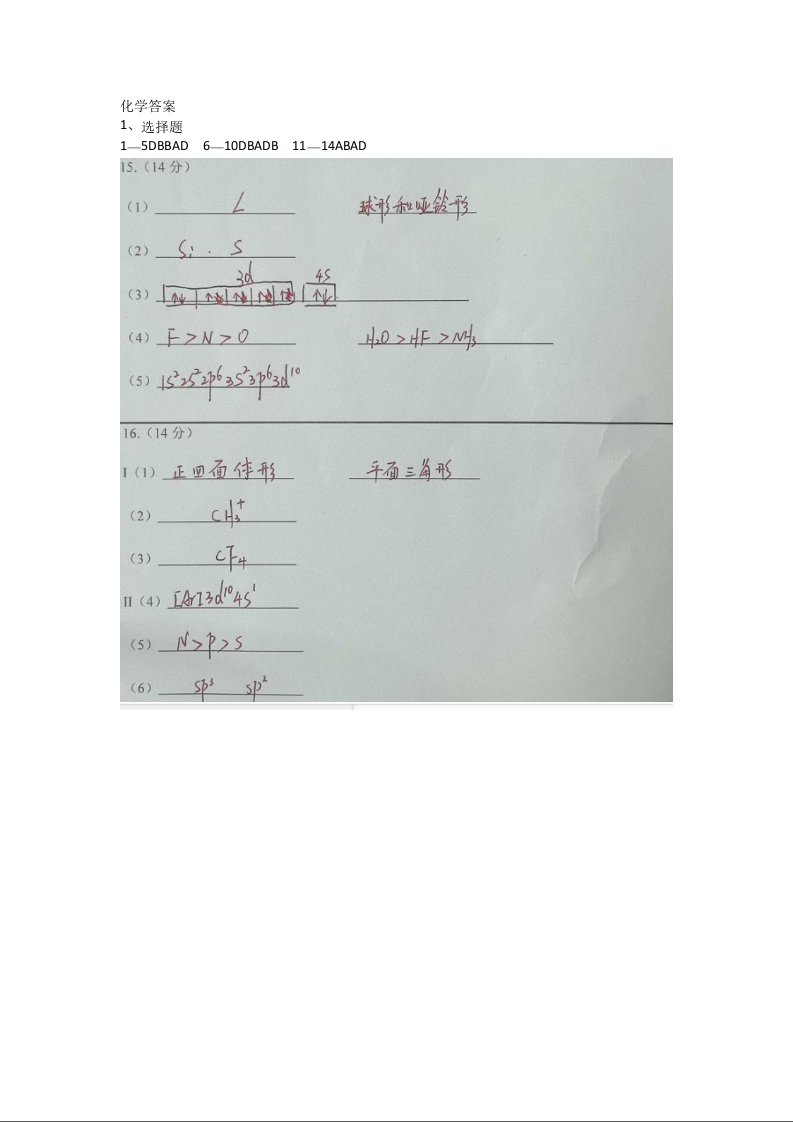 化学答案
1、选择题
1—5DBBAD 6—10DBADB 11—14ABAD
15.（14 分）
（1） L 球形和哑铃形
（2） Si . S
3d 4S
（3） ↑↓ ↑↓ ↑↓ ↑↓ ↑↓ ↑↓
（4） F > N > O H₂O > HF > NH₃
（5） 1S²2S²2p⁶3S²3p⁶3d¹⁰
16.（14 分）
I（1） 正四面体形 平面三角形
（2） CH₃⁺
（3） CF₄
II（4） [Ar]3d¹⁰4S¹
（5） N > P > S
（6） sp³ sp²